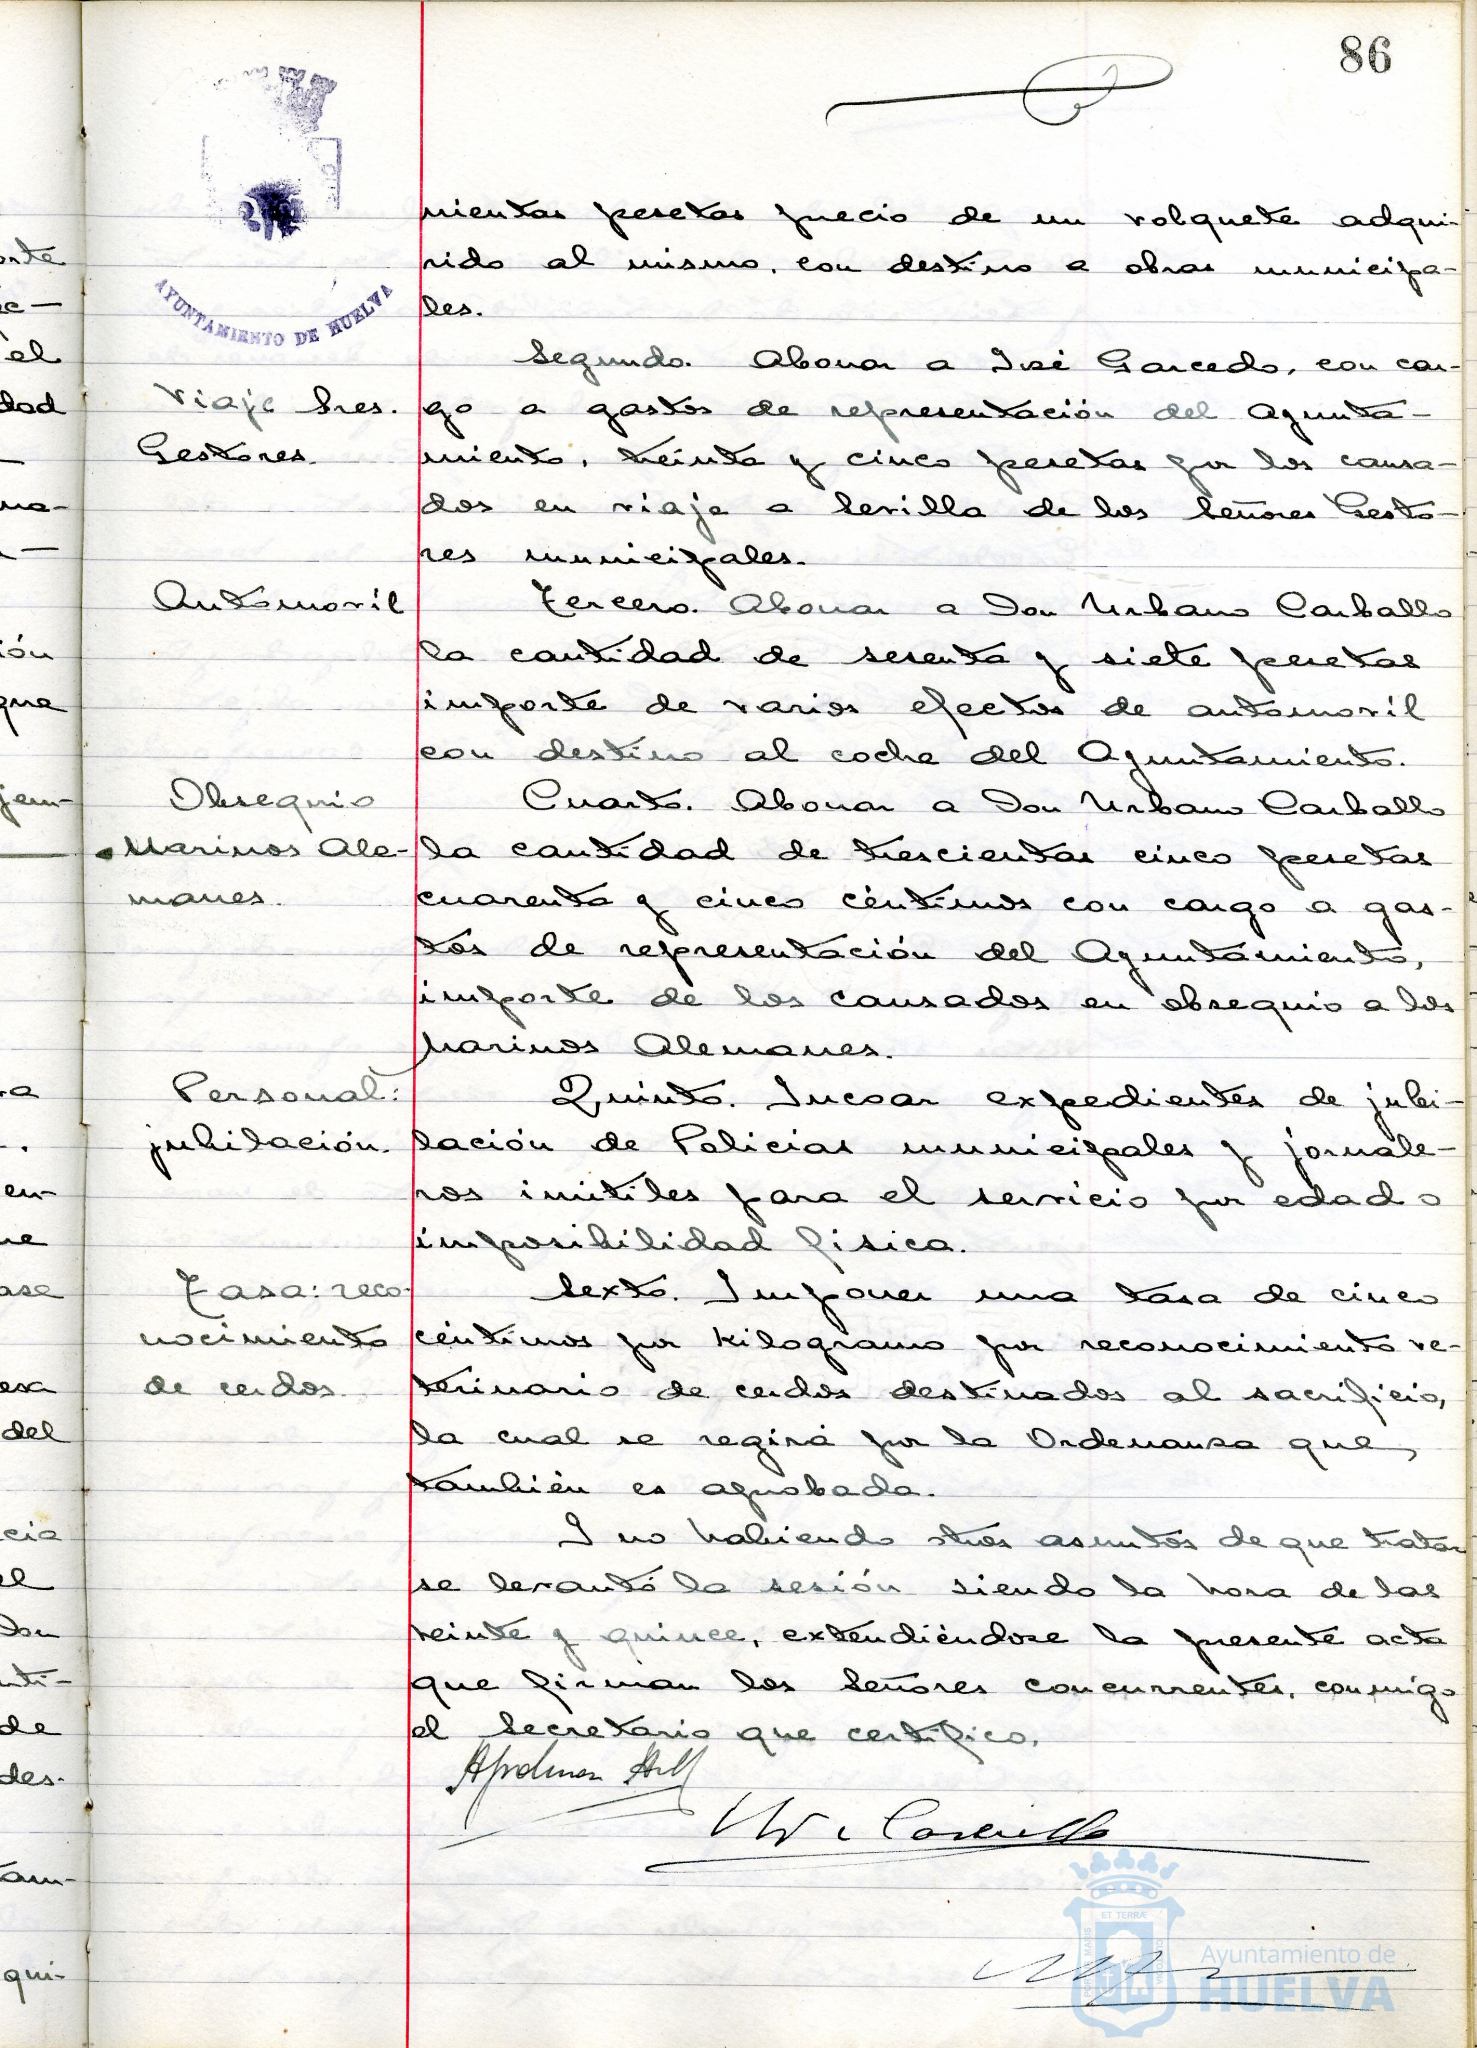 86
AYUNTAMIENTO DE HUELVA
nientas pesetas precio de un volquete adqui-
rido al mismo, con destino a obras municipa-
les.
Viaje Sres.
Gestores.
Segundo. Abonar a José Garcedo, con car-
go a gastos de representación del Ayunta-
miento, treinta y cinco pesetas por los causa-
dos en viaje a Sevilla de los Señores Gesto-
res municipales.
Automovil
Tercero. Abonar a Don Urbano Carballo
la cantidad de sesenta y siete pesetas
importe de varios efectos de automovil
con destino al coche del Ayuntamiento.
Obsequio
Marinos Ale-
manes.
Cuarto. Abonar a Don Urbano Carballo
la cantidad de trescientas cinco pesetas
cuarenta y cinco céntimos con cargo a gas-
tos de representación del Ayuntamiento,
importe de los causados en obsequio a los
Marinos Alemanes.
Personal:
jubilación.
Quinto. Incoar expedientes de jubi-
lación de Policias municipales y jornale-
ros inútiles para el servicio por edad o
imposibilidad física.
Tasa: reco-
nocimiento
de cerdos.
Sexto. Imponer una tasa de cinco
céntimos por kilogramo por reconocimiento ve-
terinario de cerdos destinados al sacrificio,
la cual se regirá por la Ordenanza que,
también es aprobada.
I no habiendo otros asuntos de que tratar
se levantó la sesión siendo la hora de las
veinte y quince, extendiéndose la presente acta
que firman los Señores concurrentes, conmigo
el Secretario que certifico.
ET TERRÆ
Ayuntamiento de
HUELVA
orte
el
dad
ión
que
ra
en-
ase
del
cia
el
de
des-
qui-